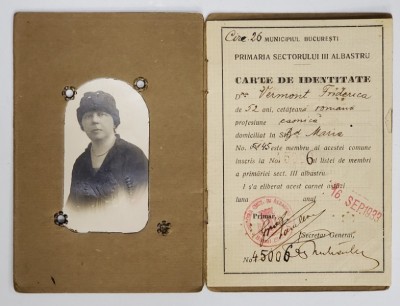 Circ. 26 MUNICIPIUL BUCUREȘTI
PRIMARIA SECTORULUI III ALBASTRU
CARTE DE IDENTITATE
Vermont Friderica
de 52 ani, cetățeană română
profesiune casnică
domiciliat în Maria
No. 45 este membru al acestei comune
înscris la No. 6 al listei de membri
a primăriei sect. III albastru.
I s'a eliberat acest carnet astăzi
luna anul
16 SEP. 1933
Primar,
Secretar General,
No. 45006